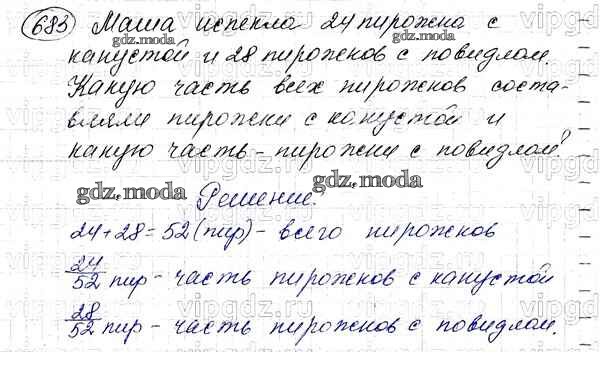 683 Маша испекла 24 пирожка с
капустой и 28 пирожков с повидлом.
Какую часть всех пирожков соста-
вляли пирожки с капустой и
какую часть - пирожки с повидлом?
Решение:
24+28=52 (пир) - всего пирожков
24/52 пир - часть пирожков с капустой
28/52 пир - часть пирожков с повидлом.
gdz.moda
gdz.moda
gdz.moda
gdz.moda
vipgdz.ru